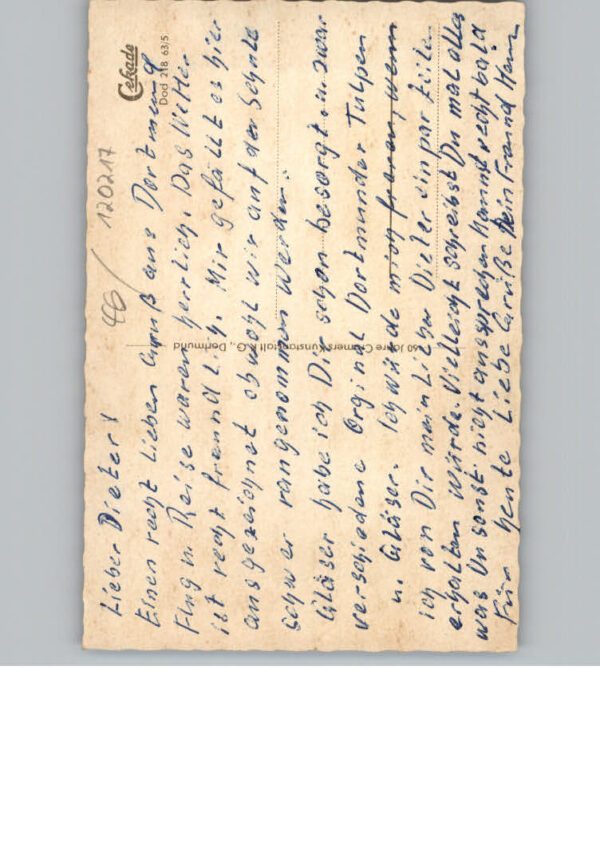 46/ 120217
Cekade
Dod 218 63/5
60 Jahre Cramers Kunstanstalt K.G., Dortmund
Lieber Dieter!
Einen recht lieben Gruß aus Dortmund
Flug u. Reise waren herrlich. Das Wetter
ist recht freundlich. Mir gefällt es hier
ausgezeichnet obwohl wir auf der Schule
schwer rangenommen werden.
Gläser habe ich Dir schon besorgt u. zwar
verschiedene Orginal Dortmunder Tulpen
u. Gläser. Ich würde mich freuen, wenn
ich von Dir mein Lieber Dieter ein par Zeilen
erhalten würde. Vielleicht schreibst Du mal alles
was Du sonst nicht aussprechen kannst recht bald
Für heute Liebe Grüße Dein Freund